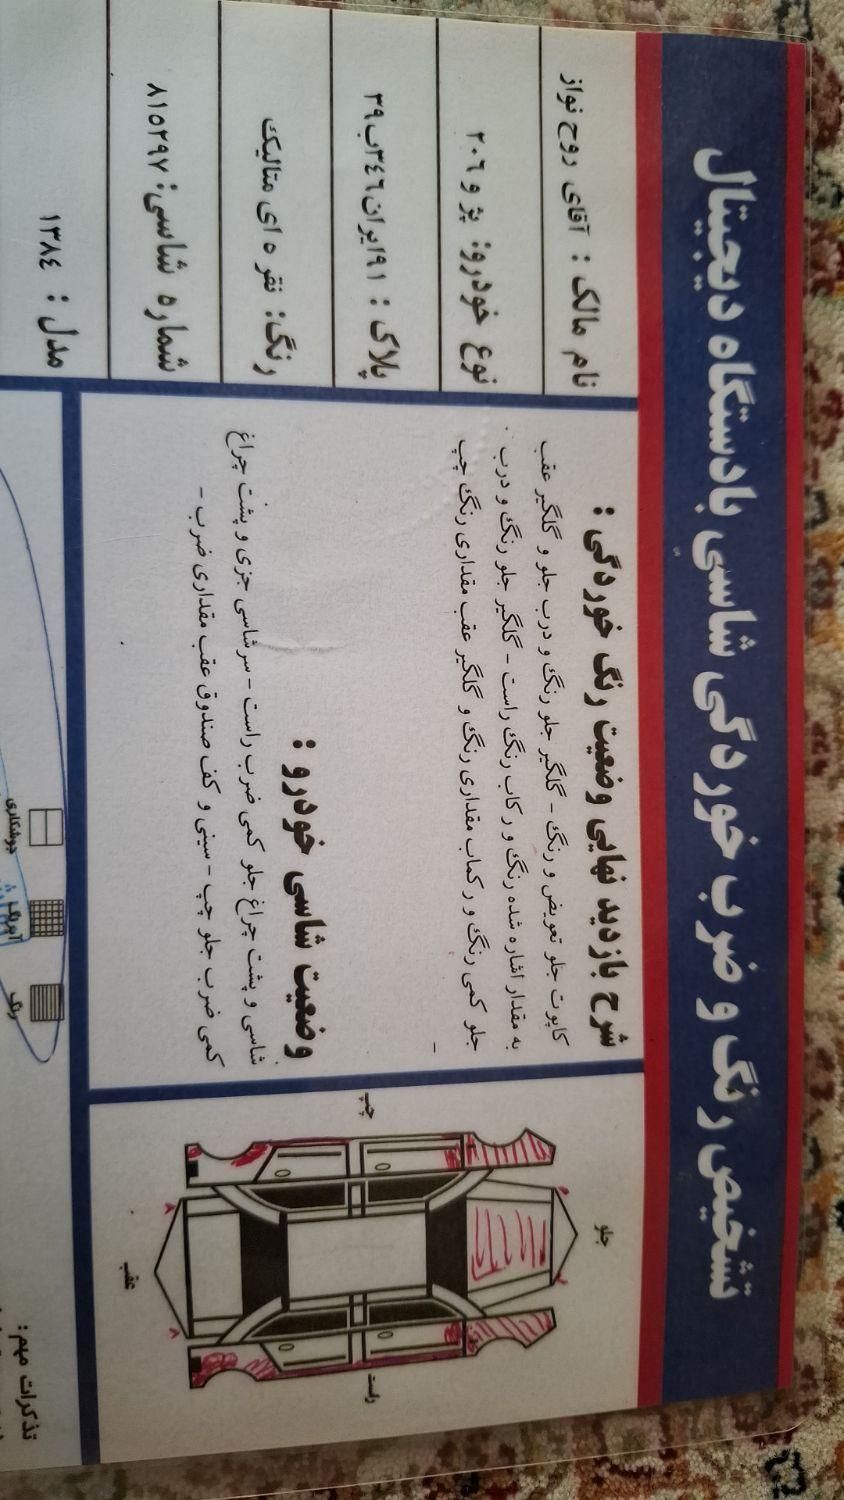 تشخیص رنگ و ضرب خوردگی شاسی بادستگاه دیجیتال
نام مالک : آقای روح نواز
نوع خودرو: پژ و ۲۰۶
پلاک : ۹۱ایران۳۴۶ب۳۹
رنگ: نقر ه ای متالیک
شماره شاسی: ۸۱۵۲۹۷
مدل : ۱۳۸۴
شرح بازدید نهایی وضعیت رنگ خوردگی :
کاپوت جلو تعویض و رنگ - گلگیر جلو رنگ و درب جلو و گلگیر عقب
به مقدار اشاره شده رنگ و رکاب رنگ راست - گلگیر جلو رنگ و درب
جلو کمی رنگ و ر کماب مقداری رنگ و گلگیر عقب مقداری رنگ چپ
-
وضعیت شاسی خودرو :
شاسی و پشت چراغ جلو کمی ضرب راست - سر شاسی جزی و پشت چراغ
کمی ضرب جلو چپ - سینی و کف صندوق عقب مقداری ضرب -
جلو
چپ
راست
عقب
رنگ
جوشکاری
تذکرات مهم: